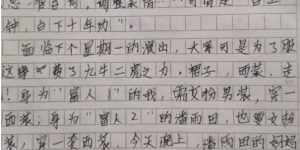 钟，台下十年功"。
面临下个星期一的演出，大家可是为了服
这里 费了九牛二虎之力。裙子，西装，走
！身为"富人1"的我，需女扮男装，穿一
西装；身为"富人2"的潘雨田，也要女扮
装，穿一套西装。今天晚上，潘雨田的妈妈